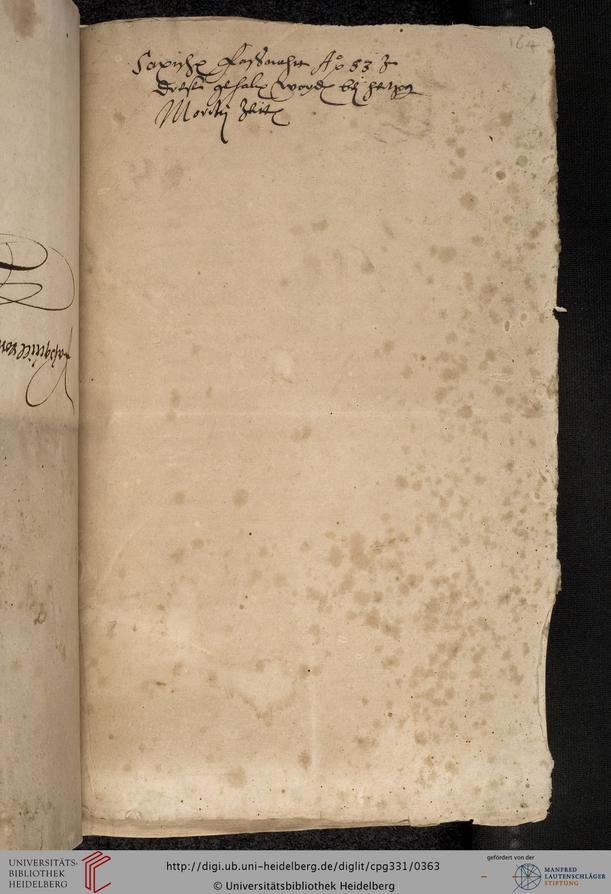 164
Saxische Fassnacht A° 53 Zu
dresen gehalten worden bey hertzog
Moritz Zeiten
UNIVERSITÄTS-
BIBLIOTHEK
HEIDELBERG
http://digi.ub.uni-heidelberg.de/diglit/cpg331/0363
© Universitätsbibliothek Heidelberg
gefördert von der
MANFRED
LAUTENSCHLÄGER
STIFTUNG